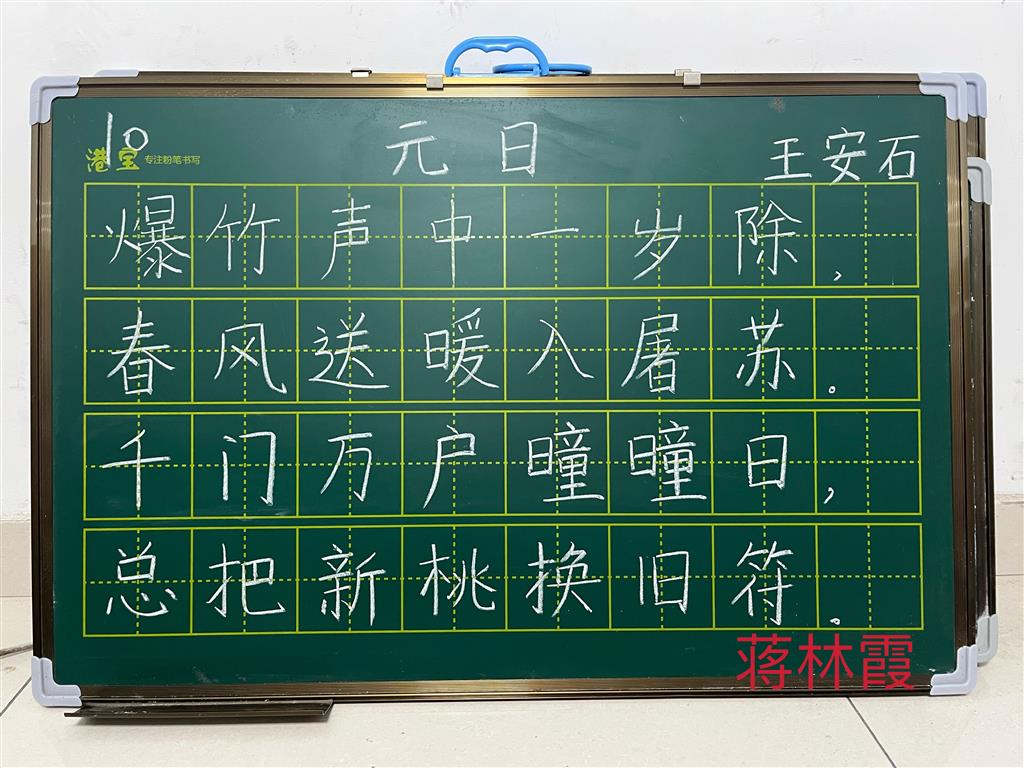 10
港宝 专注粉笔书写
元日
王安石
爆竹声中一岁除，
春风送暖入屠苏。
千门万户曈曈日，
总把新桃换旧符。
蒋林霞